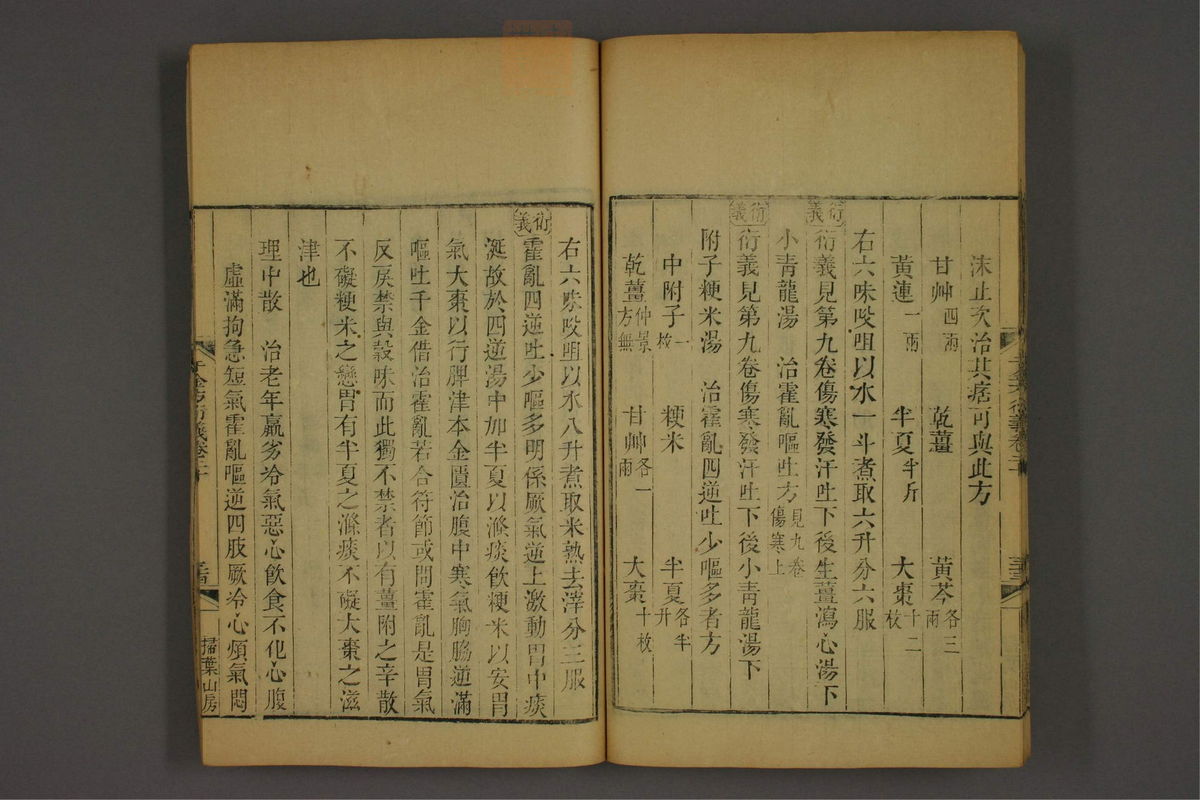 沫止次治其痞可與此方
甘艸四兩　乾薑　黃芩各三兩
黃連一兩　半夏半斤　大棗十二枚
右六味㕮咀以水一斗煮取六升分六服
衍義　衍義見第九卷傷寒發汗吐下後生薑瀉心湯下
小青龍湯　治霍亂嘔吐方見九卷傷寒上
衍義　衍義見第九卷傷寒發汗吐下後小青龍湯下
附子粳米湯　治霍亂四逆吐少嘔多者方
中附子一枚　粳米　半夏各半升
乾薑仲景方無　甘艸各一兩　大棗十枚
千金方衍義卷二十
右六味㕮咀以水八升煮取米熟去滓分三服
衍義　霍亂四逆吐少嘔多明係厥氣逆上激動胃中痰
涎故於四逆湯中加半夏以滌痰飲粳米以安胃
氣大棗以行脾津本金匱治腹中寒氣胸脇逆滿
嘔吐千金借治霍亂若合符節或問霍亂是胃氣
反戾禁與穀味而此獨不禁者以有薑附之辛散
不礙粳米之戀胃有半夏之滌痰不礙大棗之滋
津也
理中散　治老年羸劣冷氣惡心飲食不化心腹
虛滿拘急短氣霍亂嘔逆四肢厥冷心煩氣悶
千金方衍義卷二十
掃葉山房